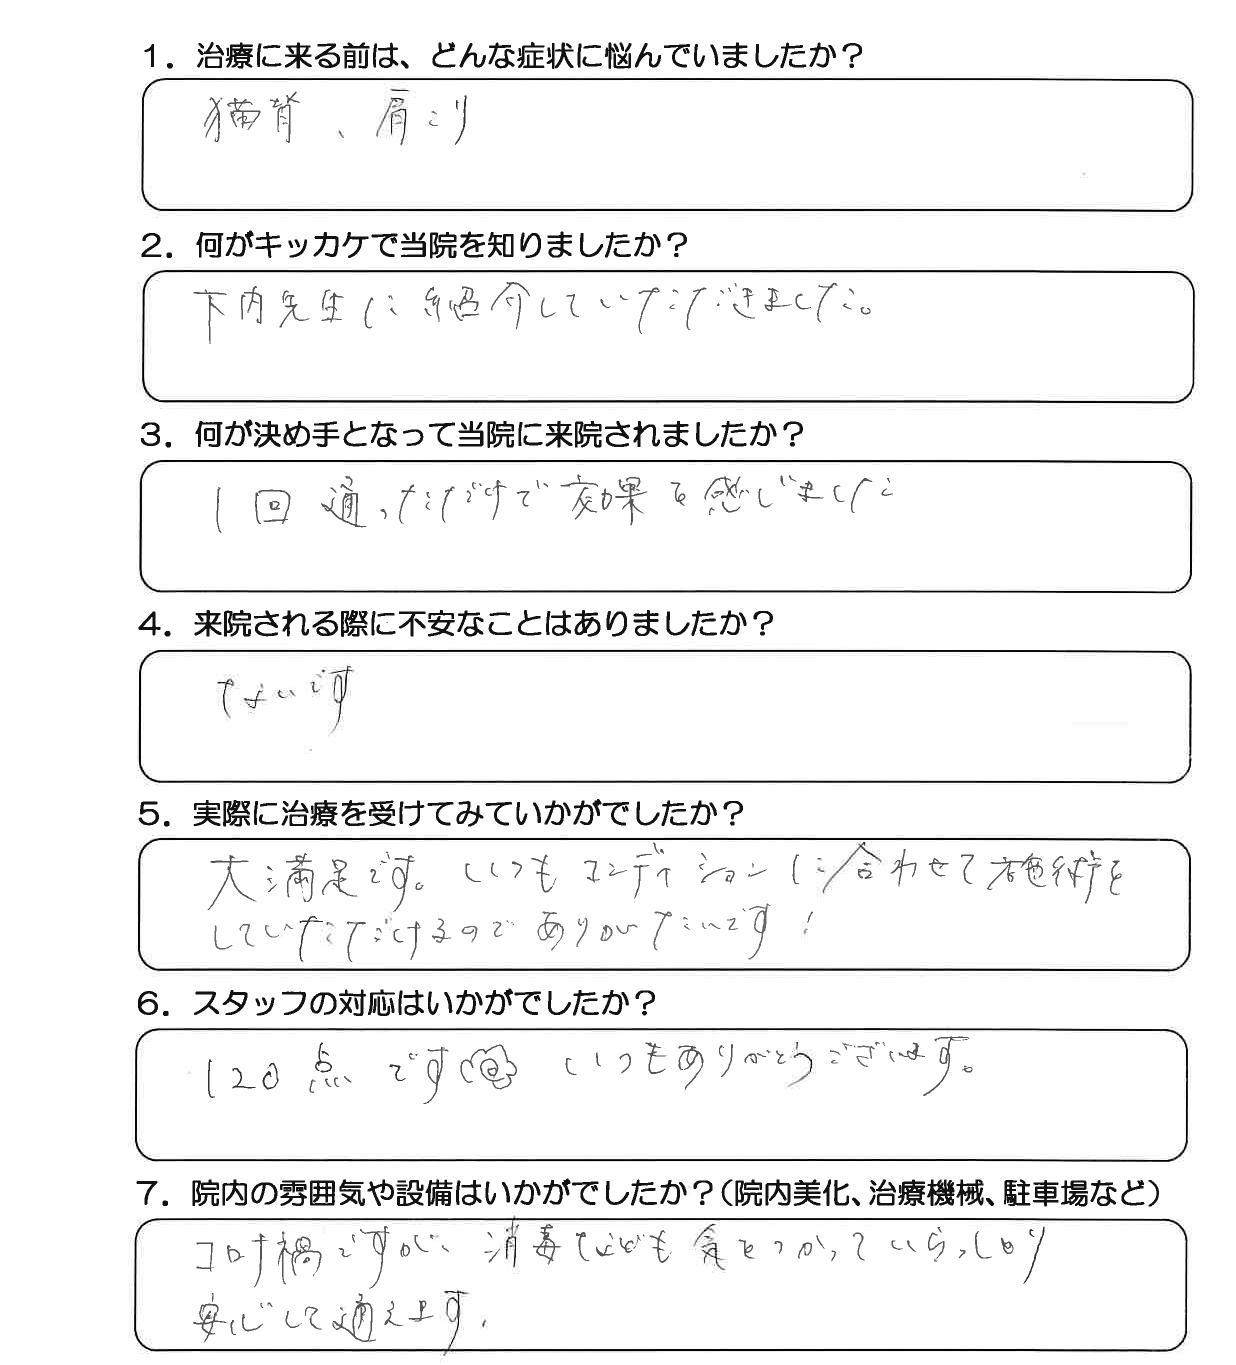 1. 治療に来る前は、どんな症状に悩んでいましたか？
猫背、肩こり
2. 何がキッカケで当院を知りましたか？
下内先生に紹介していただきました。
3. 何が決め手となって当院に来院されましたか？
1回通っただけで効果を感じました
4. 来院される際に不安なことはありましたか？
ないです
5. 実際に治療を受けてみていかがでしたか？
大満足です。いつもコンディションに合わせて施術を
していただけるのでありがたいです！
6. スタッフの対応はいかがでしたか？
120点です いつもありがとうございます。
7. 院内の雰囲気や設備はいかがでしたか？（院内美化、治療機械、駐車場など）
コロナ禍ですが、消毒なども気をつかっていらっしゃり
安心して通えます。